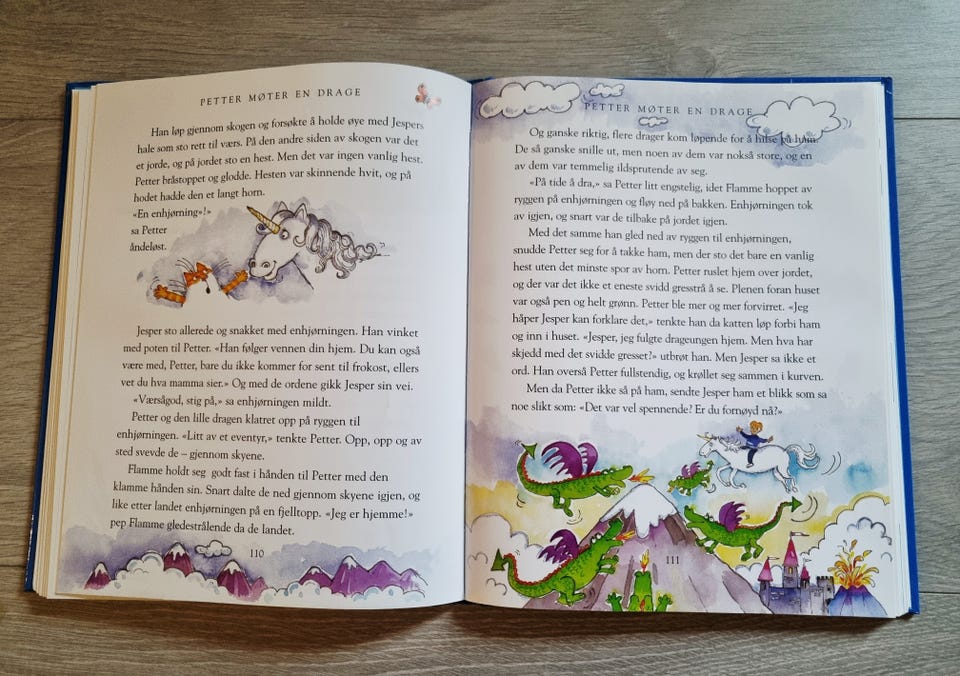 PETTER MØTER EN DRAGE
Han løp gjennom skogen og forsøkte å holde øye med Jespers
hale som sto rett til værs. På den andre siden av skogen var det
et jorde, og på jordet sto en hest. Men det var ingen vanlig hest.
Petter bråstoppet og glodde. Hesten var skinnende hvit, og på
hodet hadde den et langt horn.
«En enhjørning»!»
sa Petter
åndeløst.
Jesper sto allerede og snakket med enhjørningen. Han vinket
med poten til Petter. «Han følger vennen din hjem. Du kan også
være med, Petter, bare du ikke kommer for sent til frokost, ellers
vet du hva mamma sier.» Og med de ordene gikk Jesper sin vei.
«Værsågod, stig på,» sa enhjørningen mildt.
Petter og den lille dragen klatret opp på ryggen til
enhjørningen. «Litt av et eventyr,» tenkte Petter. Opp, opp og av
sted svevde de – gjennom skyene.
Flamme holdt seg godt fast i hånden til Petter med den
klamme hånden sin. Snart dalte de ned gjennom skyene igjen, og
like etter landet enhjørningen på en fjelltopp. «Jeg er hjemme!»
pep Flamme gledestrålende da de landet.
110
PETTER MØTER EN DRAGE
Og ganske riktig, flere drager kom løpende for å hilse på ham.
De så ganske snille ut, men noen av dem var nokså store, og en
av dem var temmelig ildsprutende av seg.
«På tide å dra,» sa Petter litt engstelig, idet Flamme hoppet av
ryggen på enhjørningen og fløy ned på bakken. Enhjørningen tok
av igjen, og snart var de tilbake på jordet igjen.
Med det samme han gled ned av ryggen til enhjørningen,
snudde Petter seg for å takke ham, men der sto det bare en vanlig
hest uten det minste spor av horn. Petter ruslet hjem over jordet,
og der var det ikke et eneste svidd gresstrå å se. Plenen foran huset
var også pen og helt grønn. Petter ble mer og mer forvirret. «Jeg
håper Jesper kan forklare det,» tenkte han da katten løp forbi ham
og inn i huset. «Jesper, jeg fulgte drageungen hjem. Men hva har
skjedd med det svidde gresset?» utbrøt han. Men Jesper sa ikke et
ord. Han overså Petter fullstendig, og krøllet seg sammen i kurven.
Men da Petter ikke så på ham, sendte Jesper ham et blikk som sa
noe slikt som: «Det var vel spennende? Er du fornøyd nå?»
111